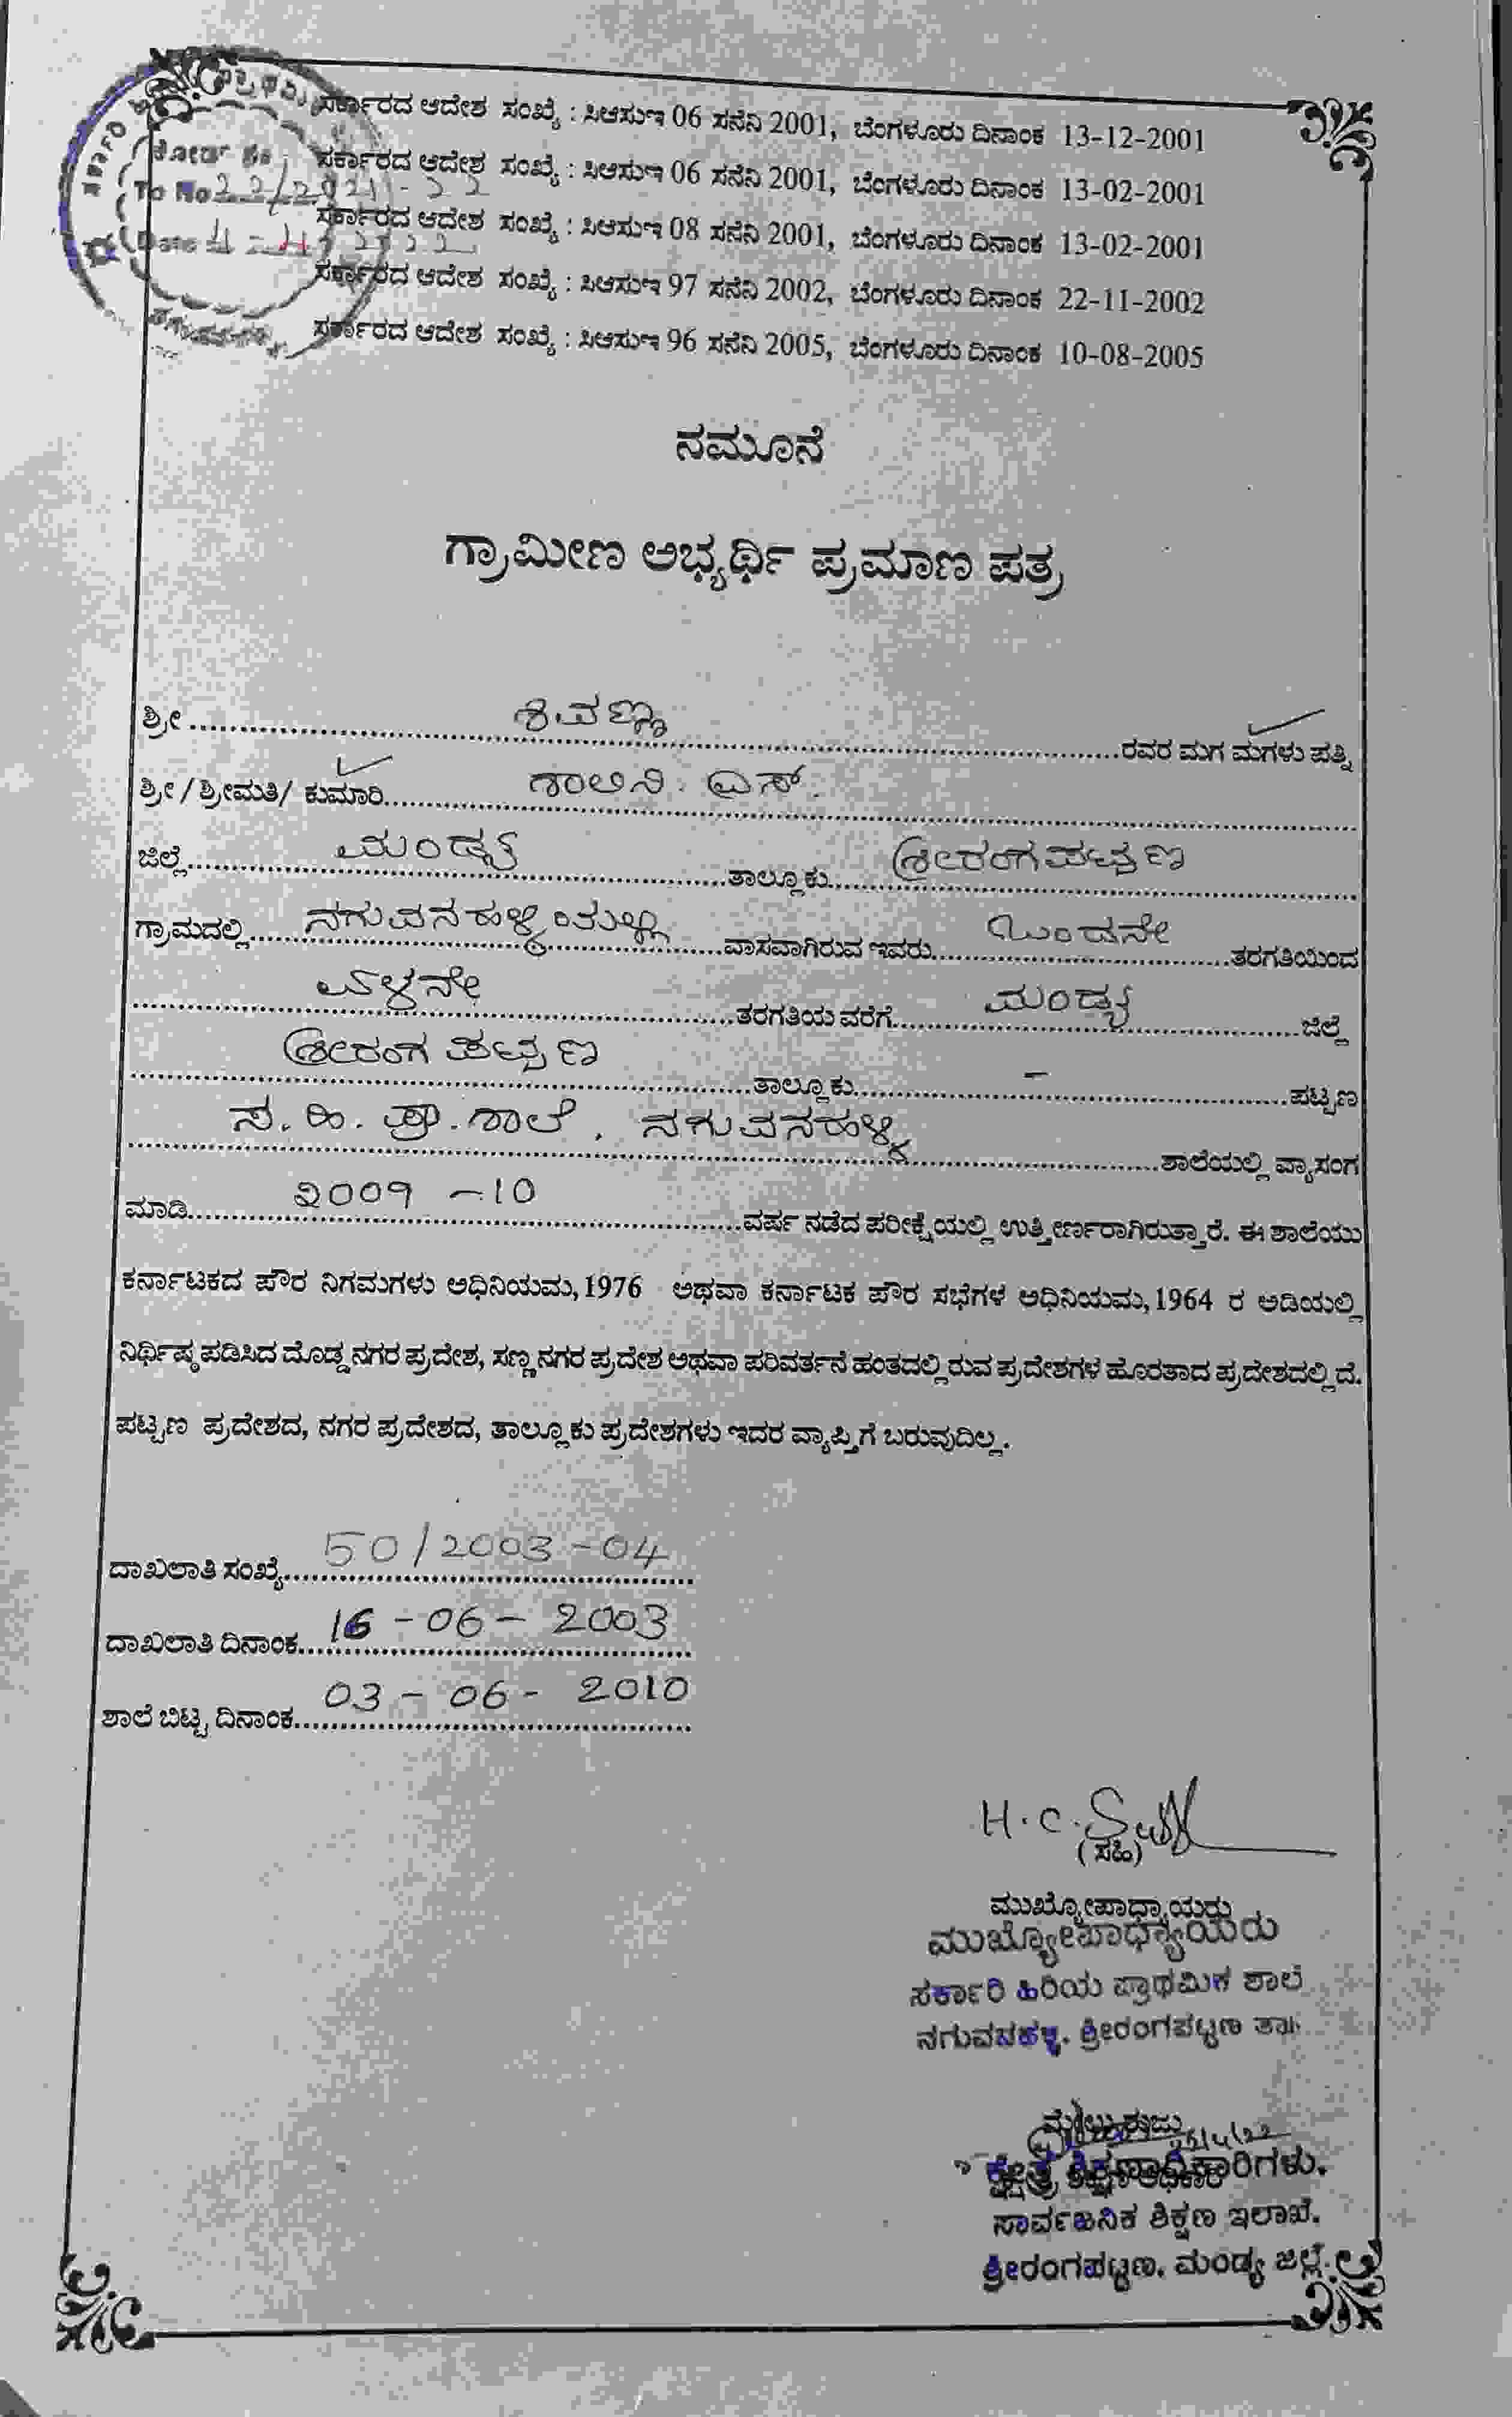 ಸರ್ಕಾರದ ಆದೇಶ ಸಂಖ್ಯೆ : ಸಿಆಸುಇ 06 ಸನೆನಿ 2001, ಬೆಂಗಳೂರು ದಿನಾಂಕ 13-12-2001
ಸರ್ಕಾರದ ಆದೇಶ ಸಂಖ್ಯೆ : ಸಿಆಸುಇ 06 ಸನೆನಿ 2001, ಬೆಂಗಳೂರು ದಿನಾಂಕ 13-02-2001
To No 22/2021-22
ಸರ್ಕಾರದ ಆದೇಶ ಸಂಖ್ಯೆ : ಸಿಆಸುಇ 08 ಸನೆನಿ 2001, ಬೆಂಗಳೂರು ದಿನಾಂಕ 13-02-2001
Date
ಸರ್ಕಾರದ ಆದೇಶ ಸಂಖ್ಯೆ : ಸಿಆಸುಇ 97 ಸನೆನಿ 2002, ಬೆಂಗಳೂರು ದಿನಾಂಕ 22-11-2002
ಸರ್ಕಾರದ ಆದೇಶ ಸಂಖ್ಯೆ : ಸಿಆಸುಇ 96 ಸನೆನಿ 2005, ಬೆಂಗಳೂರು ದಿನಾಂಕ 10-08-2005
ನಮೂನೆ
ಗ್ರಾಮೀಣ ಅಭ್ಯರ್ಥಿ ಪ್ರಮಾಣ ಪತ್ರ
ಶ್ರೀ ಶಿವಣ್ಣ ರವರ ಮಗ ಮಗಳು ಪತ್ನಿ
ಶ್ರೀ/ಶ್ರೀಮತಿ/ ಕುಮಾರಿ ಶಾಲಿನಿ. ಎಸ್.
ಜಿಲ್ಲೆ ಮಂಡ್ಯ ತಾಲ್ಲೂಕು ಶ್ರೀರಂಗಪಟ್ಟಣ
ಗ್ರಾಮದಲ್ಲಿ ನಗುವನಹಳ್ಳಿಯಲ್ಲಿ ವಾಸವಾಗಿರುವ ಇವರು ಒಂದನೇ ತರಗತಿಯಿಂದ
ಏಳನೇ ತರಗತಿಯ ವರೆಗೆ ಮಂಡ್ಯ ಜಿಲ್ಲೆ
ಶ್ರೀರಂಗಪಟ್ಟಣ ತಾಲ್ಲೂಕು - ಪಟ್ಟಣ
ಸ. ಹಿ. ಪ್ರಾ. ಶಾಲೆ, ನಗುವನಹಳ್ಳಿ ಶಾಲೆಯಲ್ಲಿ ವ್ಯಾಸಂಗ
ಮಾಡಿ 2009 -10 ವರ್ಷ ನಡೆದ ಪರೀಕ್ಷೆಯಲ್ಲಿ ಉತ್ತೀರ್ಣರಾಗಿರುತ್ತಾರೆ. ಈ ಶಾಲೆಯು
ಕರ್ನಾಟಕದ ಪೌರ ನಿಗಮಗಳು ಅಧಿನಿಯಮ, 1976 ಅಥವಾ ಕರ್ನಾಟಕ ಪೌರ ಸಭೆಗಳ ಅಧಿನಿಯಮ, 1964 ರ ಅಡಿಯಲ್ಲಿ
ನಿರ್ಧಿಷ್ಠ ಪಡಿಸಿದ ದೊಡ್ಡ ನಗರ ಪ್ರದೇಶ, ಸಣ್ಣ ನಗರ ಪ್ರದೇಶ ಅಥವಾ ಪರಿವರ್ತನೆ ಹಂತದಲ್ಲಿರುವ ಪ್ರದೇಶಗಳ ಹೊರತಾದ ಪ್ರದೇಶದಲ್ಲಿದೆ.
ಪಟ್ಟಣ ಪ್ರದೇಶದ, ನಗರ ಪ್ರದೇಶದ, ತಾಲ್ಲೂಕು ಪ್ರದೇಶಗಳು ಇದರ ವ್ಯಾಪ್ತಿಗೆ ಬರುವುದಿಲ್ಲ.
ದಾಖಲಾತಿ ಸಂಖ್ಯೆ 50/2003-04
ದಾಖಲಾತಿ ದಿನಾಂಕ 16-06-2003
ಶಾಲೆ ಬಿಟ್ಟ ದಿನಾಂಕ 03-06-2010
H.C.
(ಸಹಿ)
ಮುಖ್ಯೋಪಾಧ್ಯಾಯರು
ಮುಖ್ಯೋಪಾಧ್ಯಾಯರು
ಸರ್ಕಾರಿ ಹಿರಿಯ ಪ್ರಾಥಮಿಕ ಶಾಲೆ
ನಗುವನಹಳ್ಳಿ, ಶ್ರೀರಂಗಪಟ್ಟಣ ತಾ.
ಮೇಲು ರುಜು
ಕ್ಷೇತ್ರ ಶಿಕ್ಷಣಾಧಿಕಾರಿಗಳು.
ಸಾರ್ವಜನಿಕ ಶಿಕ್ಷಣ ಇಲಾಖೆ.
ಶ್ರೀರಂಗಪಟ್ಟಣ, ಮಂಡ್ಯ ಜಿಲ್ಲೆ.